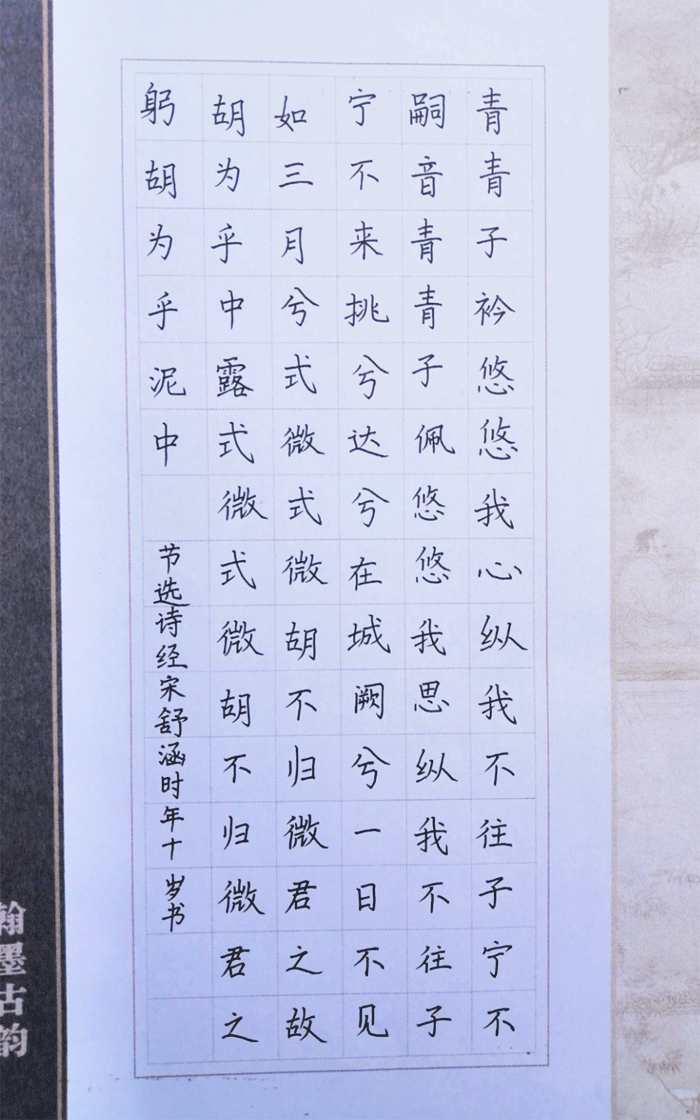 青青子衿悠悠我心纵我不往子宁不
嗣音青青子佩悠悠我思纵我不往子
宁不来挑兮达兮在城阙兮一日不见
如三月兮式微式微胡不归微君之故
胡为乎中露式微式微胡不归微君之
躬胡为乎泥中
节选诗经宋舒涵时年十岁书
翰墨古韵